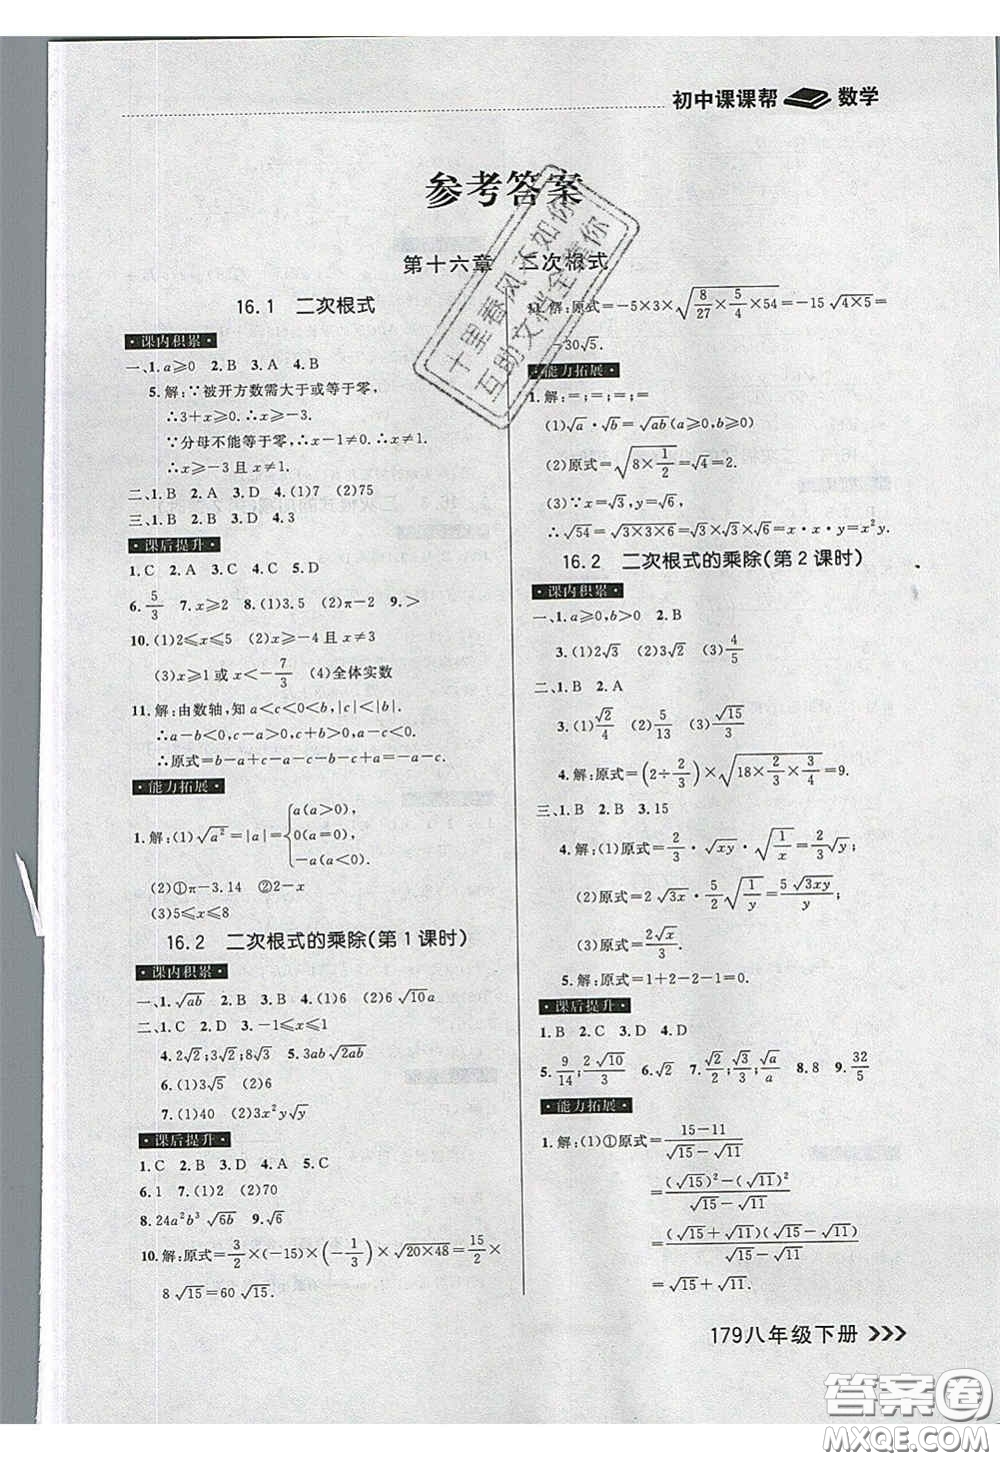 初中课课帮 数学
参考答案
第十六章 二次根式
16.1 二次根式
·课内积累·
一、1.a⩾0 2.B 3.A 4.B
5.解:∵被开方数需大于或等于零,
∴3+x⩾0.∴x⩾-3.
∵分母不能等于零,∴x-1≠0.∴x≠1.
∴x⩾-3且x≠1.
二、1.B 2.A 3.D 4.(1)7 (2)75
三、1.B 2.B 3.D 4.3
·课后提升·
1.C 2.A 3.C 4.C 5.D
6.5/3 7.x⩾2 8.(1)3.5 (2)π-2 9.>
10.(1)2⩽x⩽5 (2)x⩾-4且x≠3
(3)x⩾1或x<-7/3 (4)全体实数
11.解:由数轴,知a<c<0<b,|c|<|b|.
∴a-b<0,c-a>0,c+b>0,a-c<0.
∴原式=b-a+c-a-c-b+a-c=-a-c.
·能力拓展·
1.解:(1)√a²=|a|={a(a>0), 0(a=0), -a(a<0).
(2)①π-3.14 ②2-x
(3)5⩽x⩽8
16.2 二次根式的乘除(第1课时)
·课内积累·
一、1.√ab 2.B 3.B 4.(1)6 (2)6√10a
二、1.C 2.D 3.-1⩽x⩽1
4.2√2;3√2;8√3 5.3ab√2ab
6.(1)3√5 (2)6
7.(1)40 (2)3x²y√y
·课后提升·
1.C 2.B 3.D 4.A 5.C
6.1 7.(1)2 (2)70
8.24a²b³√6b 9.√6
10.解:原式=3/2×(-15)×(-1/3)×√20×48=15/2×
8√15=60√15.
11.解:原式=-5×3×√(8/27×5/4×54)=-15√4×5=
-30√5.
·能力拓展·
1.解:=;=;=;=
(1)√a·√b=√ab(a⩾0,b⩾0)
(2)原式=√(8×1/2)=√4=2.
(3)∵x=√3,y=√6,
∴√54=√3×3×6=√3×√3×√6=x·x·y=x²y.
16.2 二次根式的乘除(第2课时)
·课内积累·
一、1.a⩾0,b>0 2.B
3.(1)2√3 (2)3√2 (3)4/5
二、1.B 2.A
3.(1)√2/4 (2)5/13 (3)√15/3
4.解:原式=(2÷2/3)×√(18×2/3×3/4)=9.
三、1.B 2.B 3.15
4.解:(1)原式=2/3·√xy·√(1/x)=2/3√y;
(2)原式=2√3x·5/2√(1/y)=5√3xy/y;
(3)原式=2√x/3.
5.解:原式=1+2-2-1=0.
·课后提升·
1.B 2.C 3.D 4.D
5.9/14;2√10/3 6.√2 7.√2/2;√3/3;√a/a 8.8 9.32/5
·能力拓展·
1.解:(1)①原式=(15-11)/(√15-√11)
=((√15)²-(√11)²)/(√15-√11)
=(√15+√11)(√15-√11)/(√15-√11)
=√15+√11.
179八年级下册
十里春风不如你
互助文档全集你
答案圈
MXQE.COM